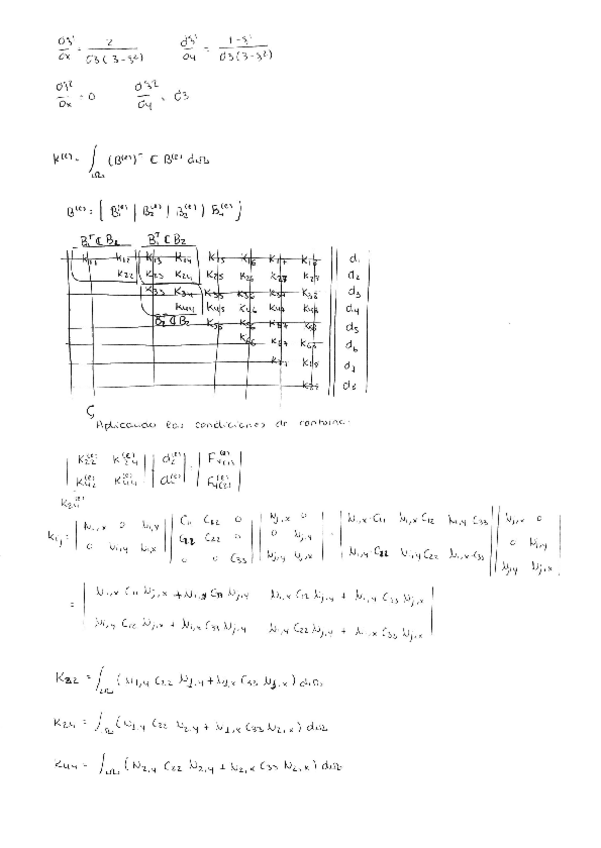 ∂ξ¹/∂x = 2/(√3(3-ξ²)) ∂ξ¹/∂y = (1-ξ¹)/(√3(3-ξ²))
∂ξ²/∂x = 0 ∂ξ²/∂y = √3
K⁽ᵉ⁾ = ∫_Ω (B⁽ᵉ⁾)ᵀ ℂ B⁽ᵉ⁾ dΩ
B⁽ᵉ⁾ = [ B₁⁽ᵉ⁾ | B₂⁽ᵉ⁾ | B₃⁽ᵉ⁾ | B₄⁽ᵉ⁾ ]
B₁ᵀ ℂ B₁ B₁ᵀ ℂ B₂
K11 K12 K13 K14 K15 K16 K17 K18 d1
K22 K23 K24 K25 K26 K27 K28 d2
K33 K34 K35 K36 K37 K38 d3
K44 K45 K46 K47 K48 d4
B₂ᵀ ℂ B₂ K55 K56 K57 K58 d5
K66 K67 K68 d6
d7
d8
Aplicando las condiciones de contorno:
| K22⁽ᵉ⁾ K24⁽ᵉ⁾ | | d2⁽ᵉ⁾ |
| K42⁽ᵉ⁾ K44⁽ᵉ⁾ | | d4⁽ᵉ⁾ |
K24⁽ᵉ⁾
Kij = | Ni,x 0 Ni,y | | C11 C12 0 | | Nj,x 0 | = | Ni,x C11 Ni,x C12 Ni,y C33 | | Nj,x 0 |
| 0 Ni,y Ni,x | | C22 C22 0 | | 0 Nj,y | | Ni,y C22 Ni,y C22 Ni,x C33 | | 0 Nj,y |
| 0 0 C33 | | Nj,y Nj,x | | Nj,y Nj,x |
= | Ni,x C11 Nj,x + Ni,y C33 Nj,y Ni,x C12 Nj,y + Ni,y C33 Nj,x |
| Ni,y C12 Nj,x + Ni,x C33 Nj,y Ni,y C22 Nj,y + Ni,x C33 Nj,x |
K22 = ∫_Ω (N1,y C22 N1,y + N1,x C33 N1,x) dΩ
K24 = ∫_Ω (N1,y C22 N2,y + N1,x C33 N2,x) dΩ
K44 = ∫_Ω (N2,y C22 N2,y + N2,x C33 N2,x) dΩ